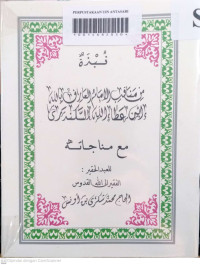 PERPUSTAKAAN UIN ANTASARI
S
نبذة
من مناقب الإمام العارف بالله
الشيخ ابن عطاء الله السكندري
مع مناجاته
للعبد الحقير :
الفقير إلى الله القدوس
الحاج محمد شكري بن أونوس